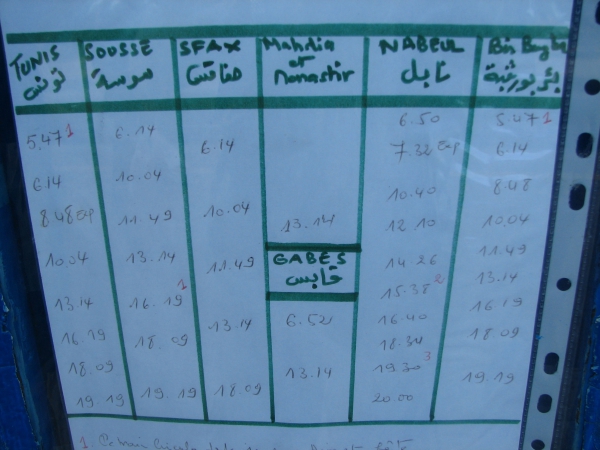 TUNIS SOUSSE SFAX Mahdia NABEUL Bir Bouregba
تونس سوسة صفاقس et نابل بئر بورقبة
Monastir
5.47¹ 6.14 6.14 6.50 5.47¹
6.14 10.04 10.04 7.32 Exp 6.14
8.48 Exp 11.49 11.49 13.14 10.40 8.48
10.04 13.14 13.14 GABES 12.10 10.04
13.14 16.19¹ 18.09 قابس 14.26 11.49
16.19 18.09 6.52 15.38² 13.14
18.09 19.19 13.14 16.40 16.19
19.19 18.34 18.09
19.30³ 19.19
20.00
1.